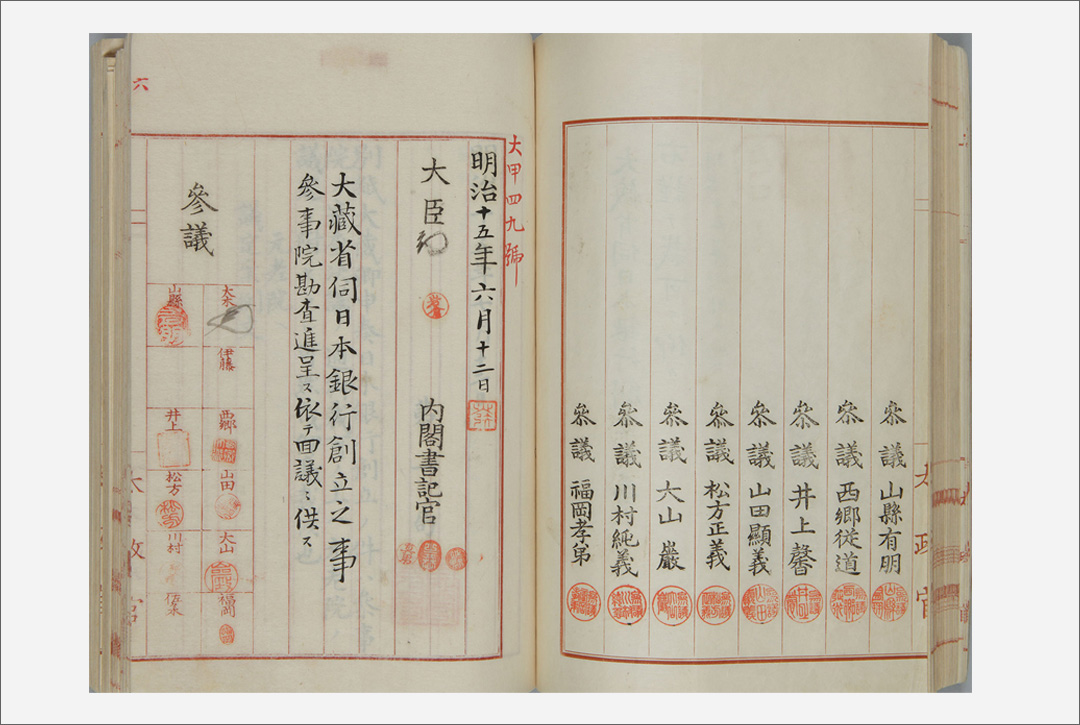 參議 山縣有明
參議 西鄉從道
參議 井上馨
參議 山田顯義
參議 松方正義
參議 大山巖
參議 川村純義
參議 福岡孝弟
太政官
大甲四九號
明治十五年六月十二日
大臣
內閣書記官
大藏省伺日本銀行創立之事
參事院勘査進呈ス依テ回議ニ供ス
參議
大木
伊藤
西鄉
山田
大山
福岡
山縣
井上
松方
川村
佐々木
六